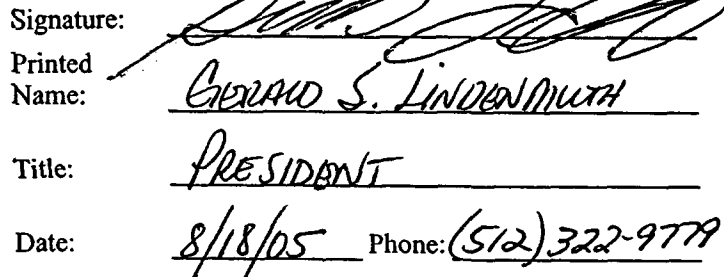 Signature:
Printed
Name: GERALD S. LINDENMUTH
Title: PRESIDENT
Date: 8/18/05 Phone: (512) 322-9779